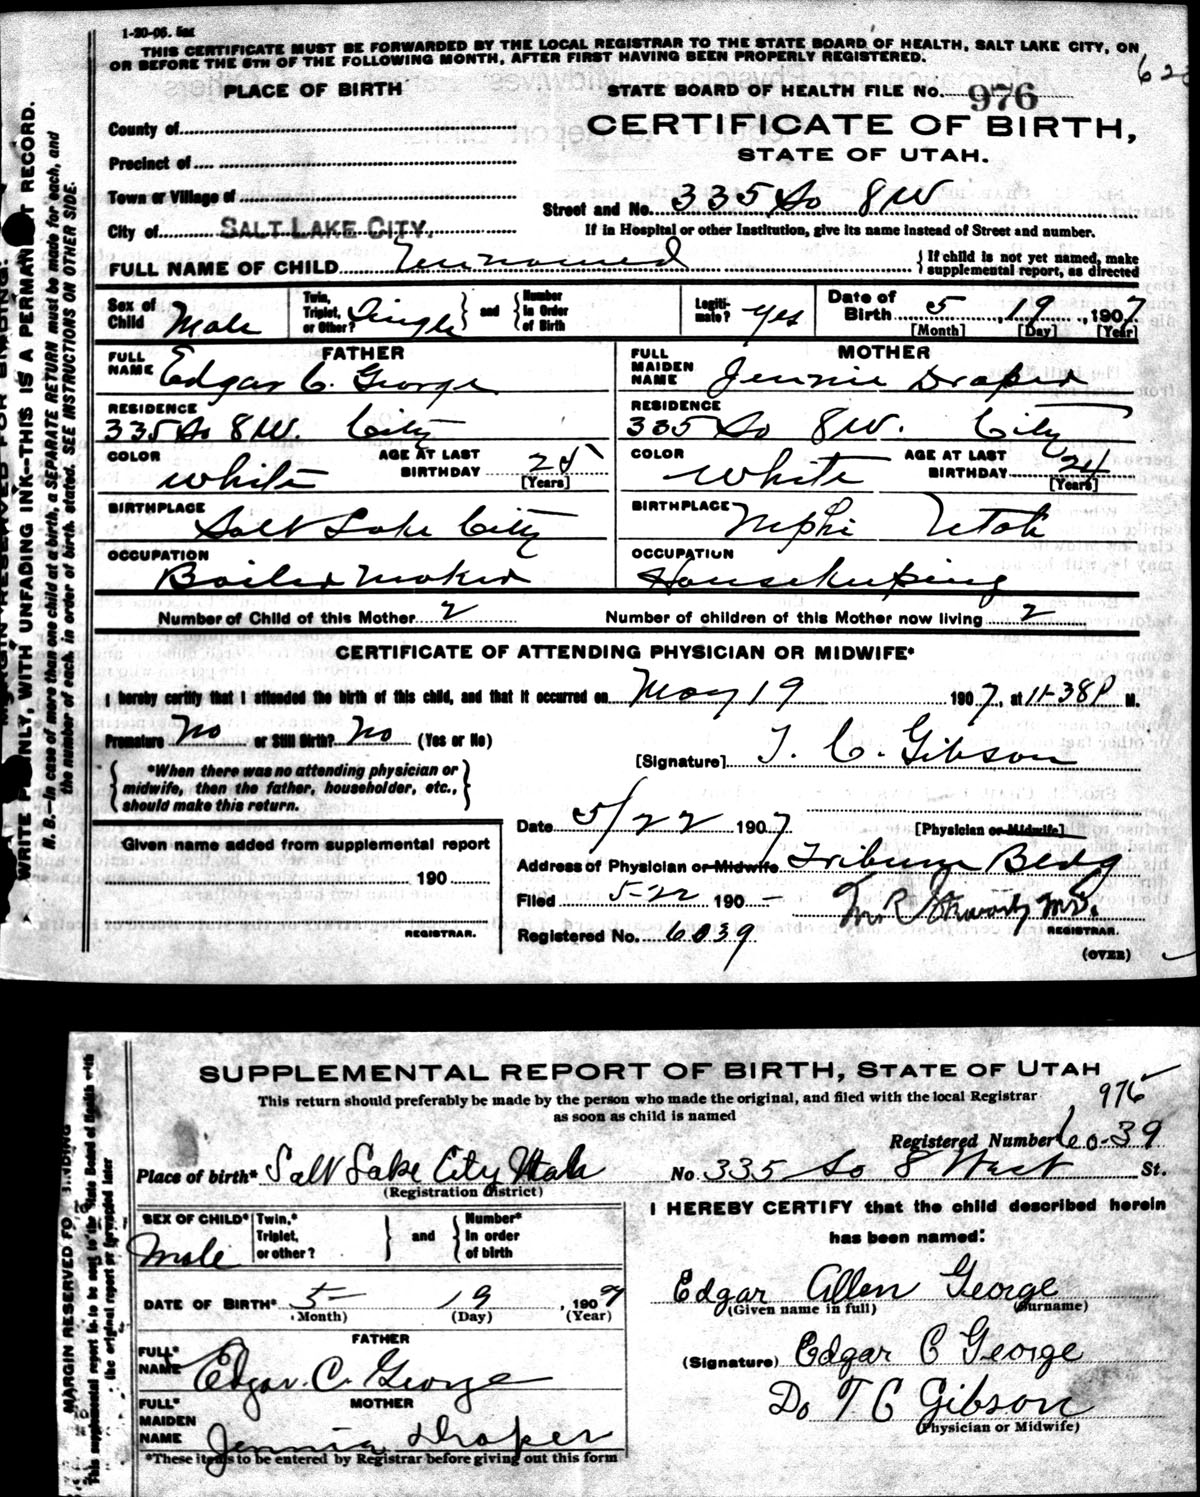 1-20-06. 5M
THIS CERTIFICATE MUST BE FORWARDED BY THE LOCAL REGISTRAR TO THE STATE BOARD OF HEALTH, SALT LAKE CITY, ON
OR BEFORE THE 5TH OF THE FOLLOWING MONTH, AFTER FIRST HAVING BEEN PROPERLY REGISTERED.
PLACE OF BIRTH
STATE BOARD OF HEALTH FILE No. 976
CERTIFICATE OF BIRTH,
STATE OF UTAH.
County of
Precinct of
Town or Village of
City of SALT LAKE CITY.
Street and No. 335 So 8 W
If in Hospital or other Institution, give its name instead of Street and number.
FULL NAME OF CHILD Unnamed
{If child is not yet named, make
supplemental report, as directed
Sex of Child Male
Twin, Triplet, or Other? Single } and { Number in Order of Birth
Legitimate? Yes
Date of Birth 5, 19, 1907
[Month] [Day] [Year]
FATHER
FULL NAME Edgar C. George
RESIDENCE
335 So 8 W. City
COLOR White AGE AT LAST BIRTHDAY 25
[Years]
BIRTHPLACE Salt Lake City
OCCUPATION Boiler Maker
MOTHER
FULL MAIDEN NAME Jennie Draper
RESIDENCE
335 So 8 W. City
COLOR White AGE AT LAST BIRTHDAY 24
[Years]
BIRTHPLACE Nephi Utah
OCCUPATION Housekeeping
Number of Child of this Mother 2 Number of children of this Mother now living 2
CERTIFICATE OF ATTENDING PHYSICIAN OR MIDWIFE*
I hereby certify that I attended the birth of this child, and that it occurred on May 19 1907, at 11-38 P M.
Premature No or Still Birth? No (Yes or No)
[Signature] T. C. Gibson
{*When there was no attending physician or
midwife, then the father, householder, etc.,
should make this return.}
Date 5/22 1907 [Physician or Midwife]
Address of Physician or Midwife Tribune Bldg
Filed 5-22 190-
REGISTRAR.
Registered No. 6039
(OVER)
Given name added from supplemental report
190
REGISTRAR.
WRITE PLAINLY, WITH UNFADING INK--THIS IS A PERMANENT RECORD.
N. B.--In case of more than one child at a birth, a SEPARATE RETURN must be made for each, and
the number of each, in order of birth, stated. SEE INSTRUCTIONS ON OTHER SIDE.
SUPPLEMENTAL REPORT OF BIRTH, STATE OF UTAH
This return should preferably be made by the person who made the original, and filed with the local Registrar
as soon as child is named
976
Registered Number 60-39
Place of birth* Salt Lake City Utah No. 335 So 8 West St.
(Registration District)
SEX OF CHILD* Male
Twin,* Triplet, or other? } and { Number* In order of birth
DATE OF BIRTH* 5 19, 1907
(Month) (Day) (Year)
FATHER
FULL* NAME Edgar. C. George
MOTHER
FULL* MAIDEN NAME Jennie Draper
*These items to be entered by Registrar before giving out this form
I HEREBY CERTIFY that the child described herein
has been named:
Edgar Allen George
(Given name in full) (Surname)
(Signature) Edgar C George
Do T C Gibson
(Physician or Midwife)
MARGIN RESERVED FOR BINDING
This supplemental report to be sent to the State Board of Health with
the original report or forwarded later